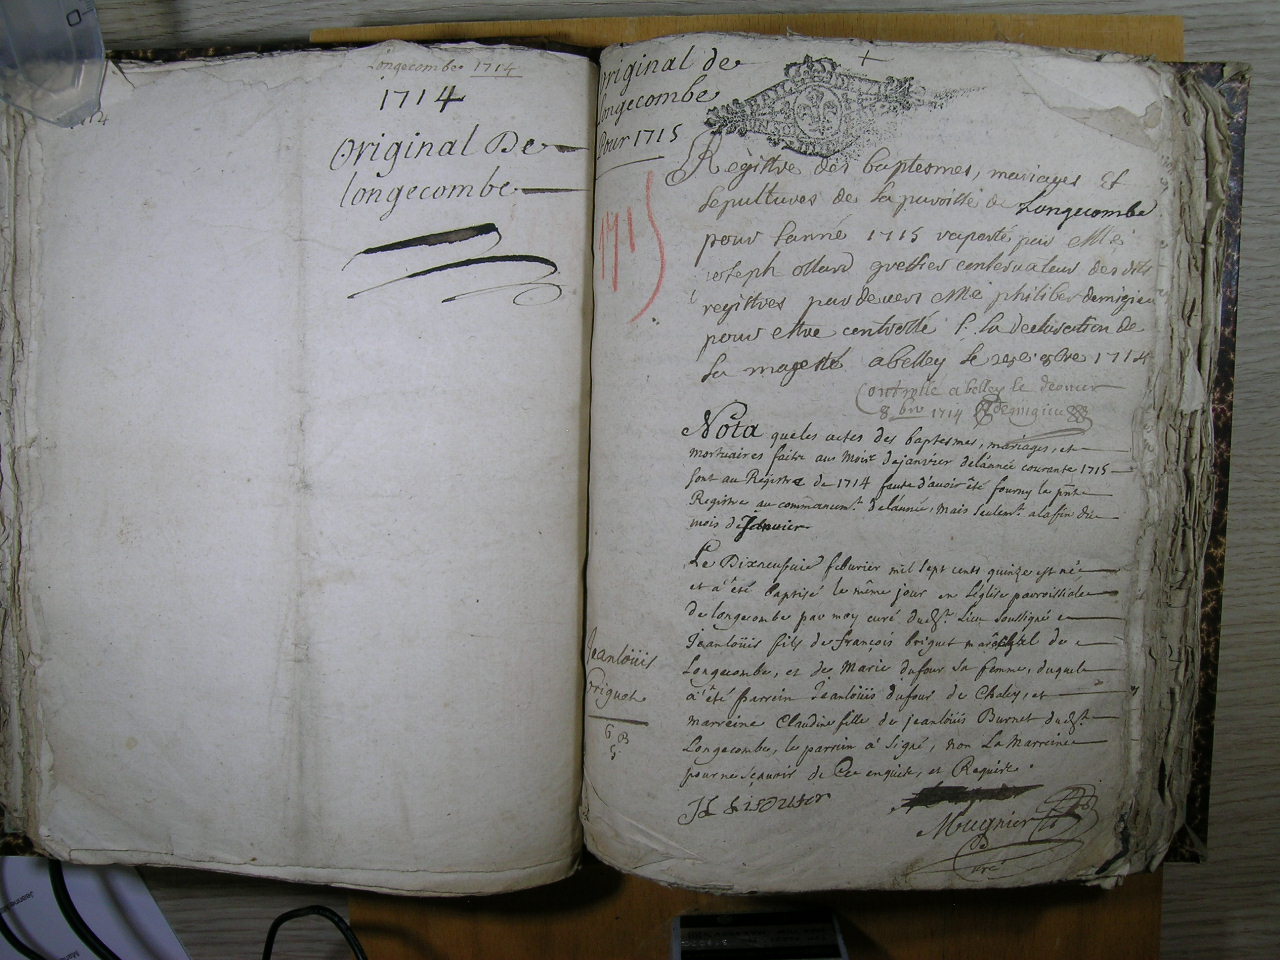 Longecombe 1714
1714
Original De
longecombe
original de
longecombe
Pour 1715
1715
GEN
UN SOL
Registre des baptesmes, mariages Et
sepultures de la paroisse de Longecombe
pour lanné 1715 raporté par Me
joseph greffier conservateur des dits
registres pardevers Me philiber demigieu
pour estre controllé s. la declaration de
sa majesté a belley le 8bre 1714
Controllé a belley le dernier
8bre 1714 Demigieu
Nota que les actes des baptesmes, mariages, et
mortuaires faits au Mois de janvier de l'année courante 1715
sont au Registre de 1714 faute d'avoir été fourny le pnt
Registre au commancemt. de l'année, mais seulemt. a la fin du
mois de Janvier
Le Dixneufvie feburier mil sept cents quinze est né
et a été baptisé le même jour en l'église parroissiale
de longecombe par moy curé dudt. lieu soussigné
Jeanloüis fils de françois briguet maréchal de
Longecombe, et de Marie dufour sa femme, duquel
a été parrein Jeanloüis dufour de Chaley, et
marreine Claudine fille de jeanloüis Burnet dudt.
Longecombe, le parrein a signé, non La Marreine
pour ne sçavoir de ce enquise, et Requise.
Jeanloüis
briguet
Mugnier
curé